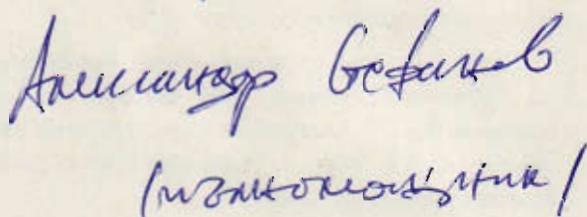 Александр Стефанов
(пълномощник)